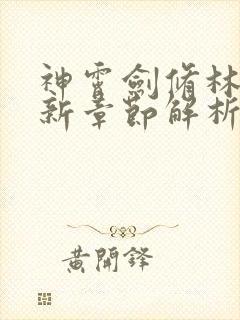 神霄劍脩林
新章節解析
黃開鋒